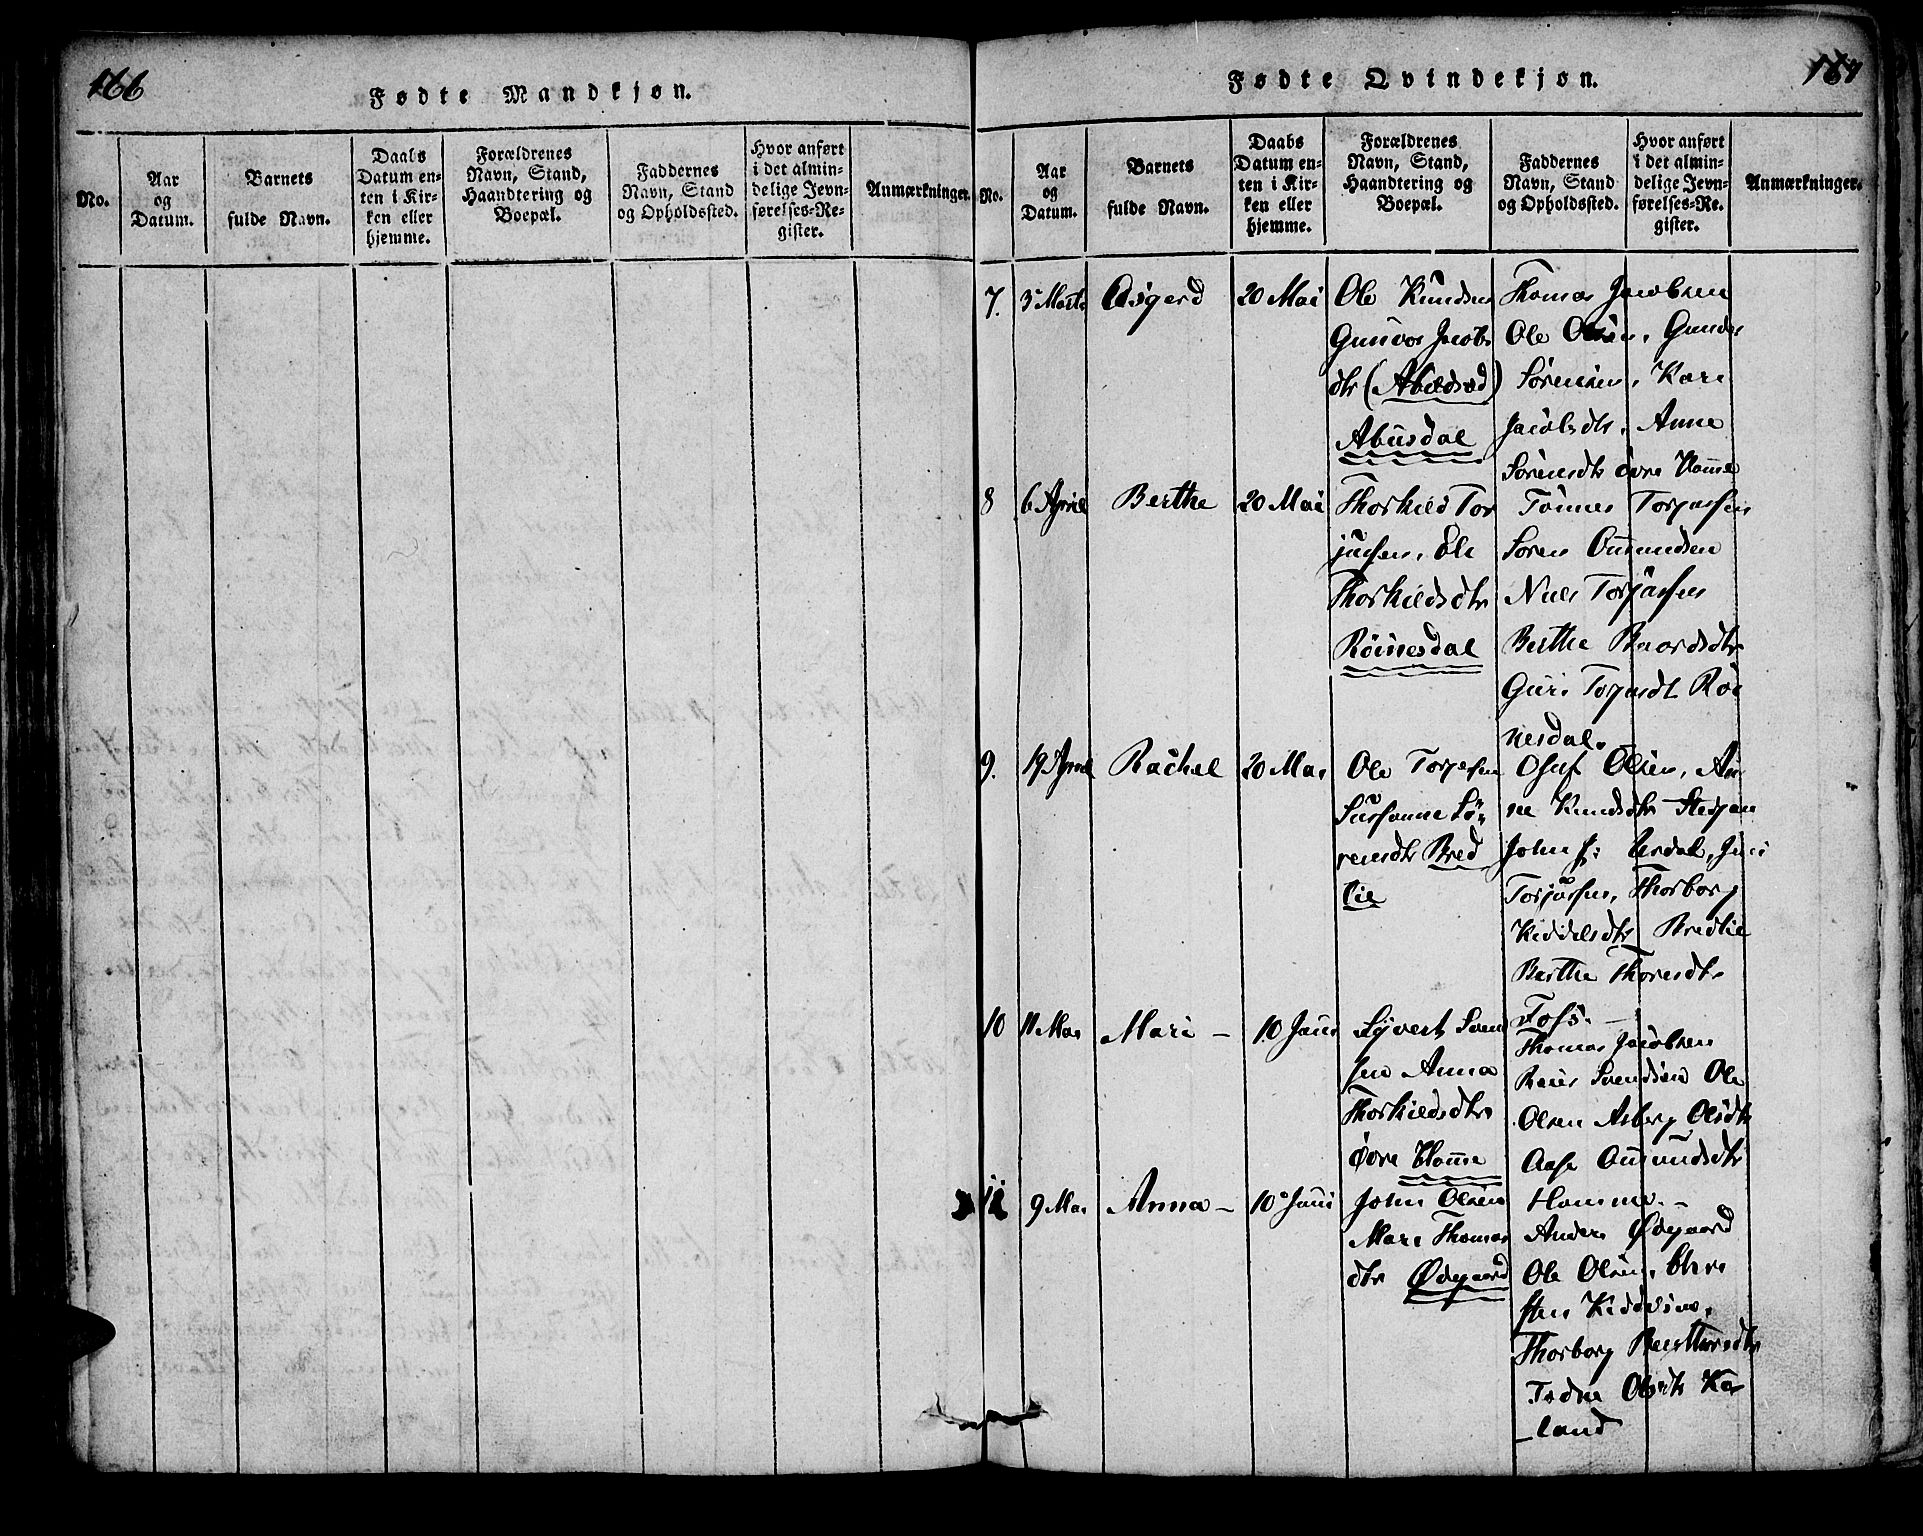 166
Fødte Mandkjøn.
No.
Aar
og
Datum.
Barnets
fulde Navn.
Daabs
Datum en-
ten i Kir-
ken eller
hjemme.
Forældrenes
Navn, Stand,
Haandtering og
Boepæl.
Faddernes
Navn, Stand
og Opholdssted.
Hvor anført
i det almin-
delige Jevn-
førelses-Re-
gister.
Anmærkninger.
167
Fødte Qvindekjøn.
No.
Aar
og
Datum.
Barnets
fulde Navn.
Daabs
Datum en-
ten i Kir-
ken eller
hjemme.
Forældrenes
Navn, Stand,
Haandtering og
Boepæl.
Faddernes
Navn, Stand
og Opholdssted.
Hvor anført
i det almin-
delige Jevn-
førelses-Re-
gister.
Anmærkninger.
7. 3 Marts Asgerd 20 Mai
Ole Knudsen
Gunvor Jacobs
dtr
Abusdal
Thomas Jacobsen
Ole Olsen, Gunder
Sørensen, Kari
Jacobsdtr, Anne
Sørensdtr övre Homme
8 6 April Berthe 20 Mai
Thorkild Tor
jussen, Eli
Thorkildsdtr
Röinesdal
Tönnes Torjussen
Soren Omundsen
Niels Torjussen
Berthe Baardsdtr
Guri Torjusdt Röi
nesdal.
9. 19 April Rachel 20 Mai
Ole Torjusen
Sussanne Sö-
rensdtr Bred
lie
Oluf Olsen, An
ne Knudsdtr
John
Torjussen, Thorborg
Keddelsdtr Bredlie
Berthe Thoresdtr
Foss.
10 11 Mai Mari - 10 Juni
Syvert Svend
sen Anna
Thorkildsdtr
Øvre Homme
Thomas Jacobsen
Reier Svendsen Ole
Olsen Asberg Olsdtr
Aase Omundsdtr
Homme. -
11 9 Mai Anna - 10 Juni
John Olsen
Mari Thomas
dtr Ødegaard
Anders Ødegaard
Ole Olsen, Chri
sten
Thorborg
Olsdtr Ka
land